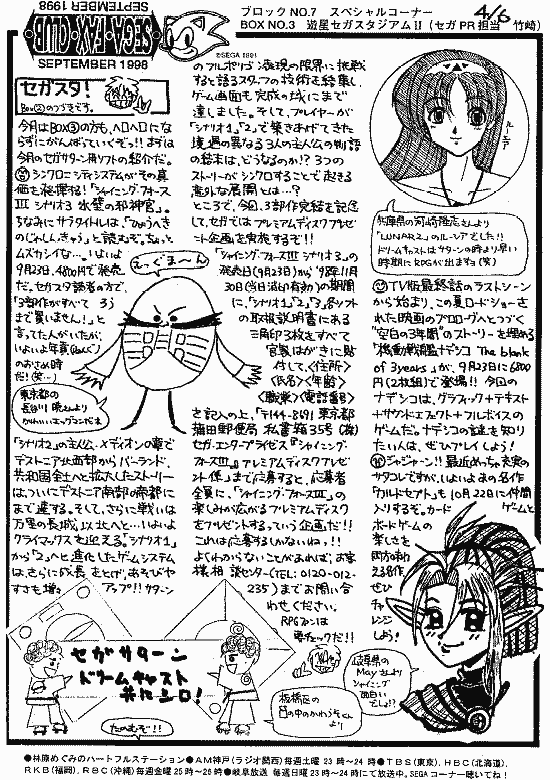 ブロックNO.7 スペシャルコーナー
BOX NO.3 遊星セガスタジアムII(セガPR担当 竹崎)
4/6
SEGA FAX CLUB
SEPTEMBER 1998
SEPTEMBER 1998
©SEGA 1991
セガスタ!
Box②のつづきです。
今月はBox③の方も、ヘロヘロにな
らずにがんばっていくぞ!!まずは
今月のセガサターン用ソフトの紹介だ。
シンクロニシティシステムがその真
価を発揮する!「シャイニング・フォース
III シナリオ3 氷壁の邪神宮」。
ちなみにサブタイトルは、「ひょうへき
のじゃしんきゅう」と読むぞ。ちょっと
ムズカシイな…。いよいよ
9月23日、4800円で発売
だ。セガスタ読者の方で、
「3部作がすべてそろう
まで買いません!」と
言ってた人がいたが、
いよいよ年貢(ねんぐ)
のおさめ時
だ!(笑…)
えっぐま〜ん
東京都の
長谷川 暁さんより
かわいいエッグマンだネ
「シナリオ2」の主人公・メディオンの章で
デストニア北西部からバーランド、
共和国全土へと拡大したストーリー
は、ついにデストニア南部の帝都に
まで達する。そして、さらに戦いは
万里の長城、以北へと…。いよいよ
クライマックスを迎える。「シナリオ1」
から「2」へと進化したゲームシステム
は、さらに成長をとげ、あそびや
すさも増々アップ!!サターン
のフルポリゴン表現の限界に挑戦
すると語るスタッフの技術を結集し、
ゲーム画面も完成の域にまで
達しました。そして、プレイヤーが
「シナリオ1」「2」で築きあげてきた
境遇の異なる3人の主人公の物語
の結末は、どうなるのか!? 3つの
ストーリーがシンクロすることで起きる
意外な展開とは…?
ところで、今回、3部作完結を記念
して、セガではプレミアムディスクプレゼ
ント企画を実施するぞ!!
「シャイニング・フォースIII シナリオ3」の
発売日(9月23日)から'98年11月
30日(当日消印有効)の期間
に、「シナリオ1」「2」「3」各ソフト
の取扱説明書にある
三角印3枚をすべて
官製はがきに貼
付して、〈住所〉
〈氏名〉〈年齢〉
〈職業〉〈電話番号〉
を記入の上、「〒144-8691 東京都
蒲田郵便局 私書箱35号 (株)
セガ・エンタープライゼス『シャイニング・
フォースIII』プレミアムディスクプレゼ
ント係」まで応募すると、応募者
全員に、「シャイニング・フォースIII」の
楽しみが広がるプレミアムディスク
をプレゼントするっていう企画だ!!
これは応募するしかないね。!!
よくわからないことがあれば、お客
様相談センター(TEL:0120-012-
235)までお問い合
わせください。
RPGファンは
要チェックだ!!
ルーシア
兵庫県の河崎隆志さんより
「LUNAR2」のルーシアでした!!
ドリームキャストはサターンの時より早い
時期にRPGが出ますヨ(笑)
TV版最終話のラストシーン
から始まり、この夏ロードショーさ
れた映画のプロローグへとつづく
“空白の3年間”のストーリーを埋める
「機動戦艦ナデシコ The blank
of 3years」が、9月23日に6800
円(2枚組)で登場!! 今回の
ナデシコは、グラフィック+テキスト
+サウンドエフェクト+フルボイスの
ゲームだ。ナデシコの謎を知り
たい人は、ぜひプレイしよう!
ジャジャーン!!最近めっちゃ充実の
サタコレですが、いよいよあの名作
「カルドセプト」も10月22日に仲間
入りするぞ。カードゲームと
ボードゲームの
楽しさを
両方味わ
える名作、
ぜひ
チャ
レン
ジ
しよう!
岐阜県の
Mayさんより
シャイニング
面白いでしょ!!
セガサターン
ドリームキャスト
共にヨロ!
たのむぞ!!
板橋区の
目の中のかわうそくんより
●林原めぐみのハートフルステーション●AM神戸(ラジオ関西)毎週土曜 23時〜24時●TBS(東京)、HBC(北海道)、
RKB(福岡)、RBC(沖縄)毎週金曜 25時〜26時●岐阜放送 毎週日曜 23時〜24時にて放送中。SEGAコーナー聴いてね!